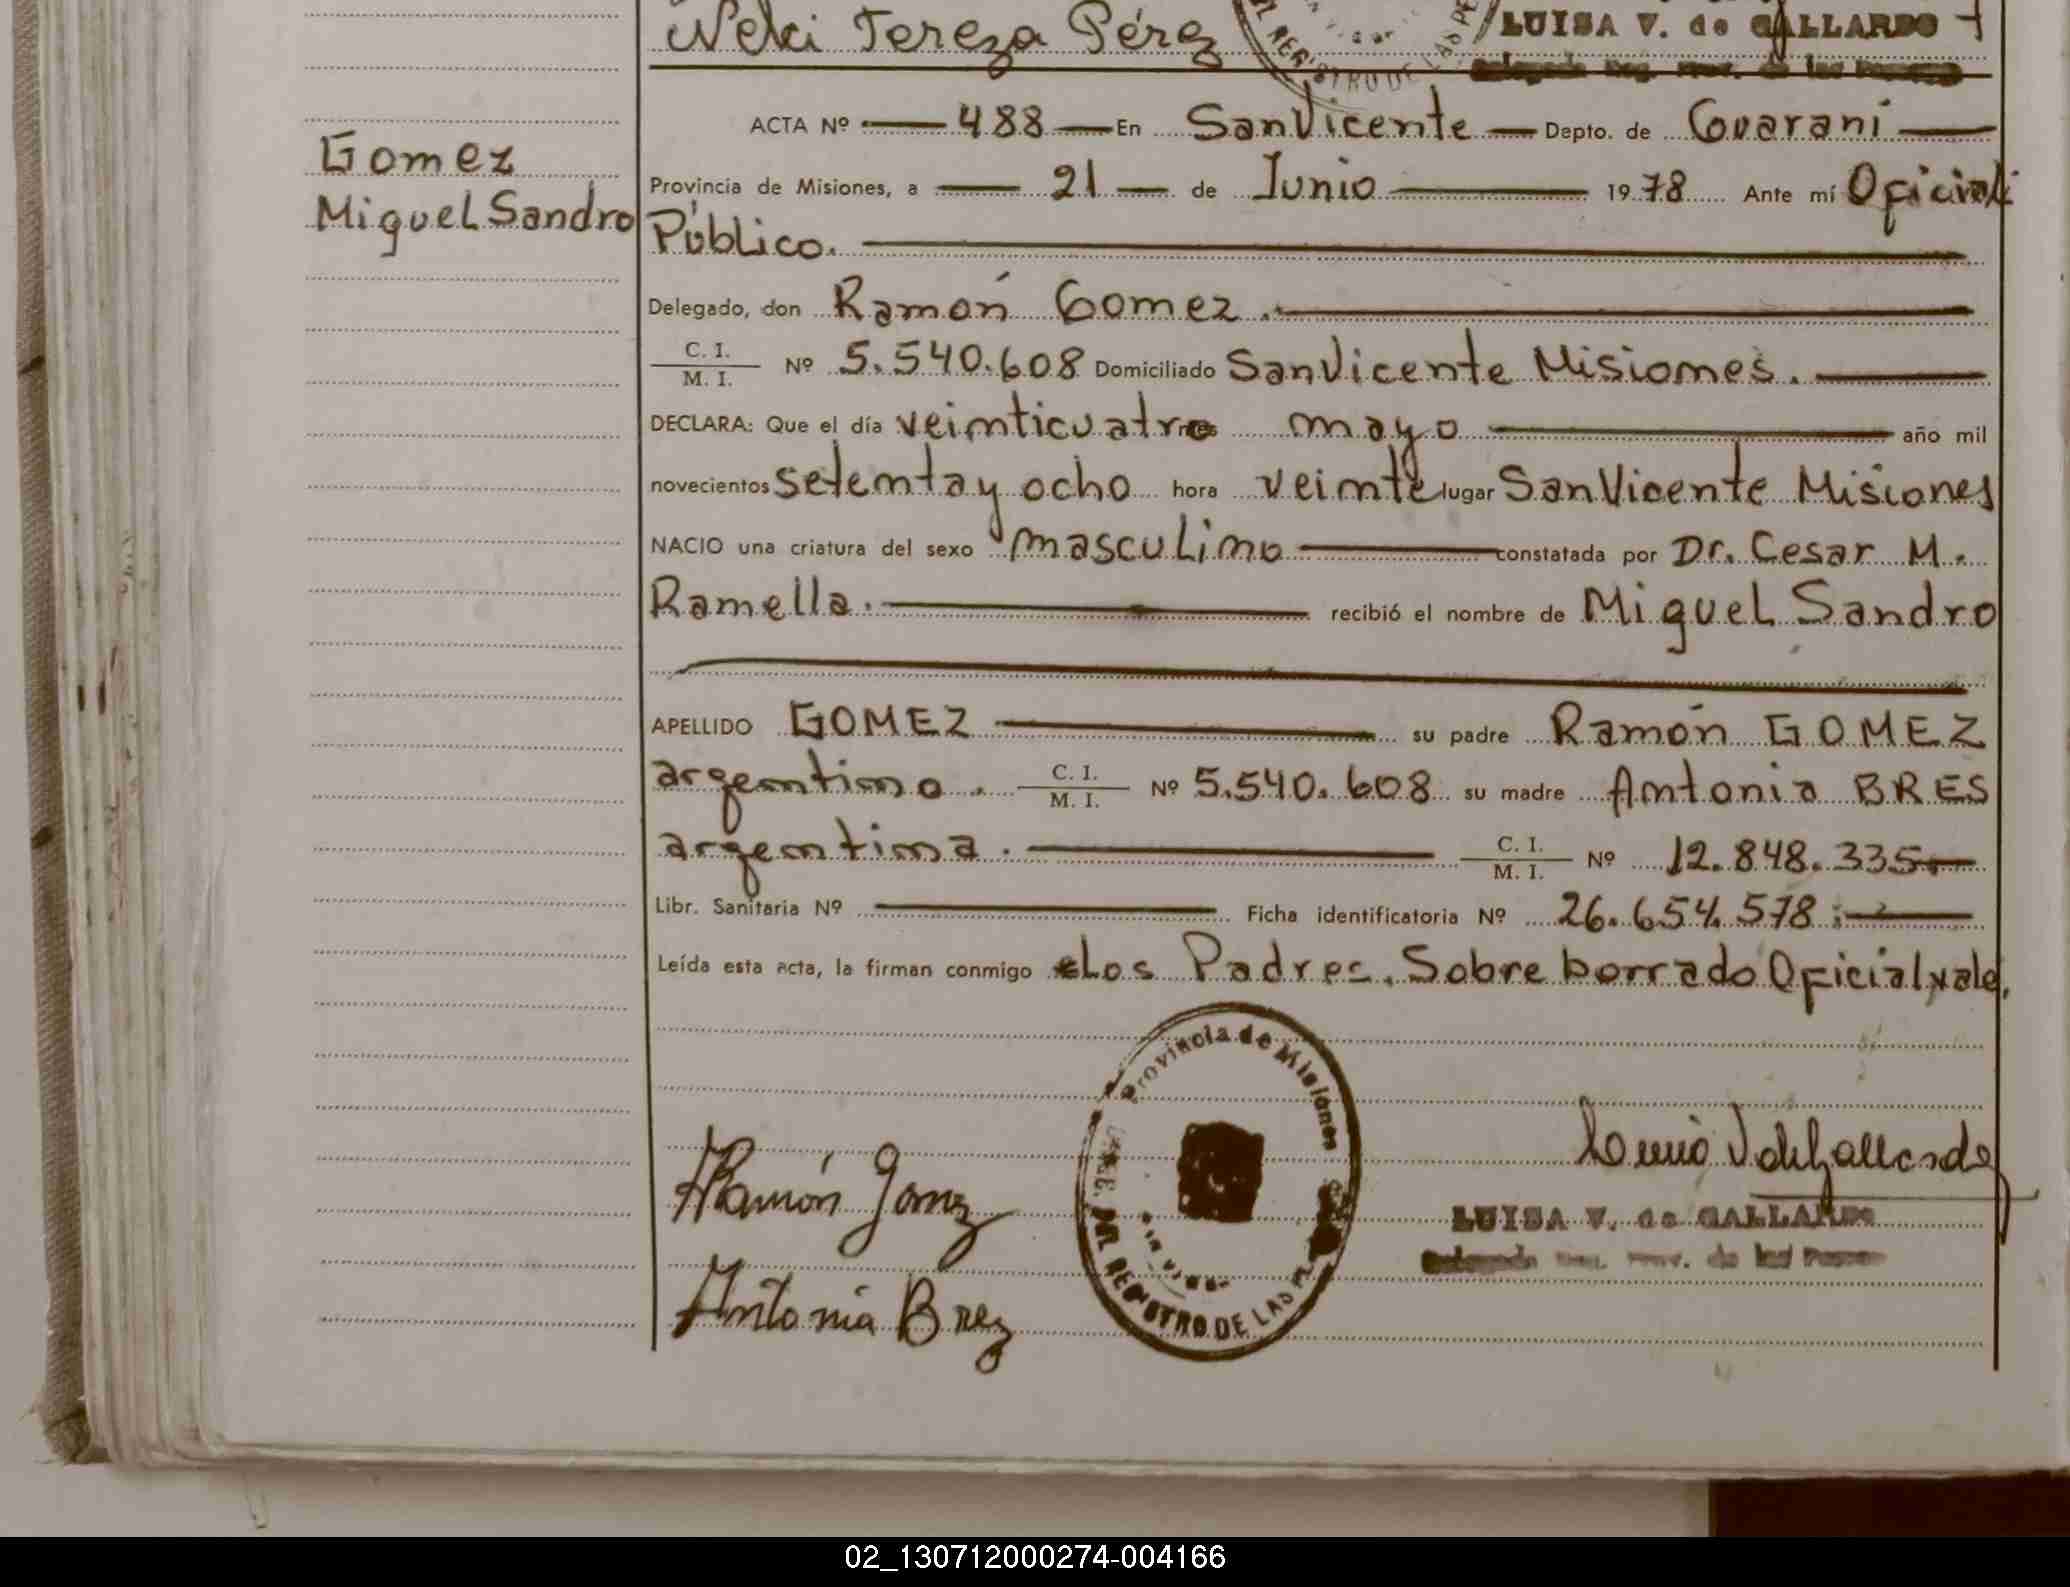 Nelci Tereza Pérez
LUISA V. de GALLARDO
REGISTRO DE LAS PE
Gomez
Miguel Sandro
ACTA Nº 488 En San Vicente Depto. de Guaraní
Provincia de Misiones, a 21 de Junio 1978 Ante mí Oficial
Público.
Delegado, don Ramón Gomez.
C. I. / M. I. Nº 5.540.608 Domiciliado San Vicente Misiones.
DECLARA: Que el día veinticuatro mes mayo año mil
novecientos setenta y ocho hora veinte lugar San Vicente Misiones
NACIO una criatura del sexo masculino constatada por Dr. Cesar M.
Ramella. recibió el nombre de Miguel Sandro
APELLIDO GOMEZ su padre Ramón GOMEZ
argentino. C. I. / M. I. Nº 5.540.608 su madre Antonia BRES
argentina. C. I. / M. I. Nº 12.848.335.
Libr. Sanitaria Nº Ficha identificatoria Nº 26.654.578
Leída esta acta, la firman conmigo Los Padres. Sobre borrado Oficial, vale.
Provincia de Misiones
REGISTRO DE LAS
Ramón Gomez
LUISA V. de GALLARDO
Antonia Brez
02_130712000274-004166